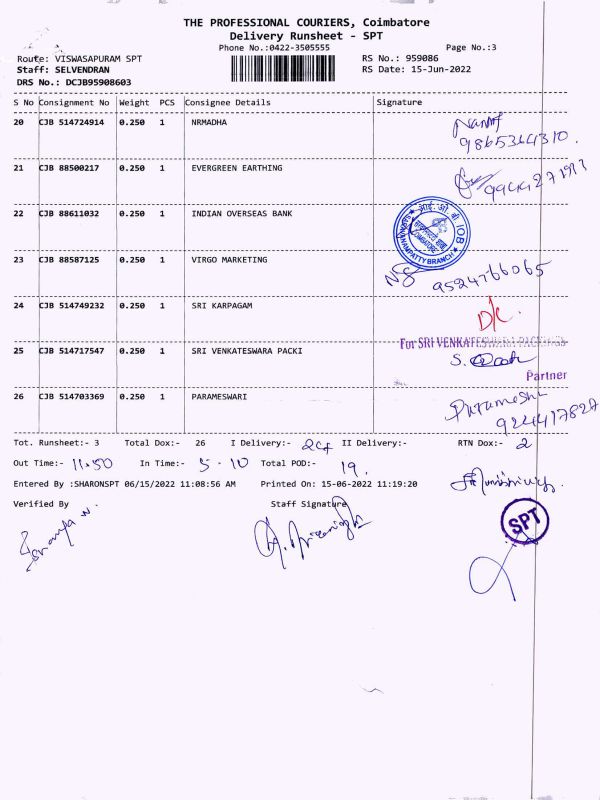 THE PROFESSIONAL COURIERS, Coimbatore
Delivery Runsheet - SPT
Phone No.:0422-3505555
Page No.:3
Route: VISWASAPURAM SPT
RS No.: 959086
Staff: SELVENDRAN
RS Date: 15-Jun-2022
DRS No.: DCJB95908603
S No Consignment No Weight PCS Consignee Details Signature
20 CJB 514724914 0.250 1 NRMADHA
9865364310.
21 CJB 88500217 0.250 1 EVERGREEN EARTHING
22 CJB 88611032 0.250 1 INDIAN OVERSEAS BANK
IOB
COIMBATORE
BRANCH
23 CJB 88587125 0.250 1 VIRGO MARKETING
9524766065
24 CJB 514749232 0.250 1 SRI KARPAGAM
D/C.
25 CJB 514717547 0.250 1 SRI VENKATESWARA PACKI
For SRI VENKATESWARA
S.
Partner
26 CJB 514703369 0.250 1 PARAMESWARI
Tot. Runsheet:- 3 Total Dox:- 26 I Delivery:- 24 II Delivery:- RTN Dox:- 2
Out Time:- 11.50 In Time:- 5.10 Total POD:- 19.
Entered By :SHARONSPT 06/15/2022 11:08:56 AM Printed On: 15-06-2022 11:19:20
Verified By Staff Signature
SPT